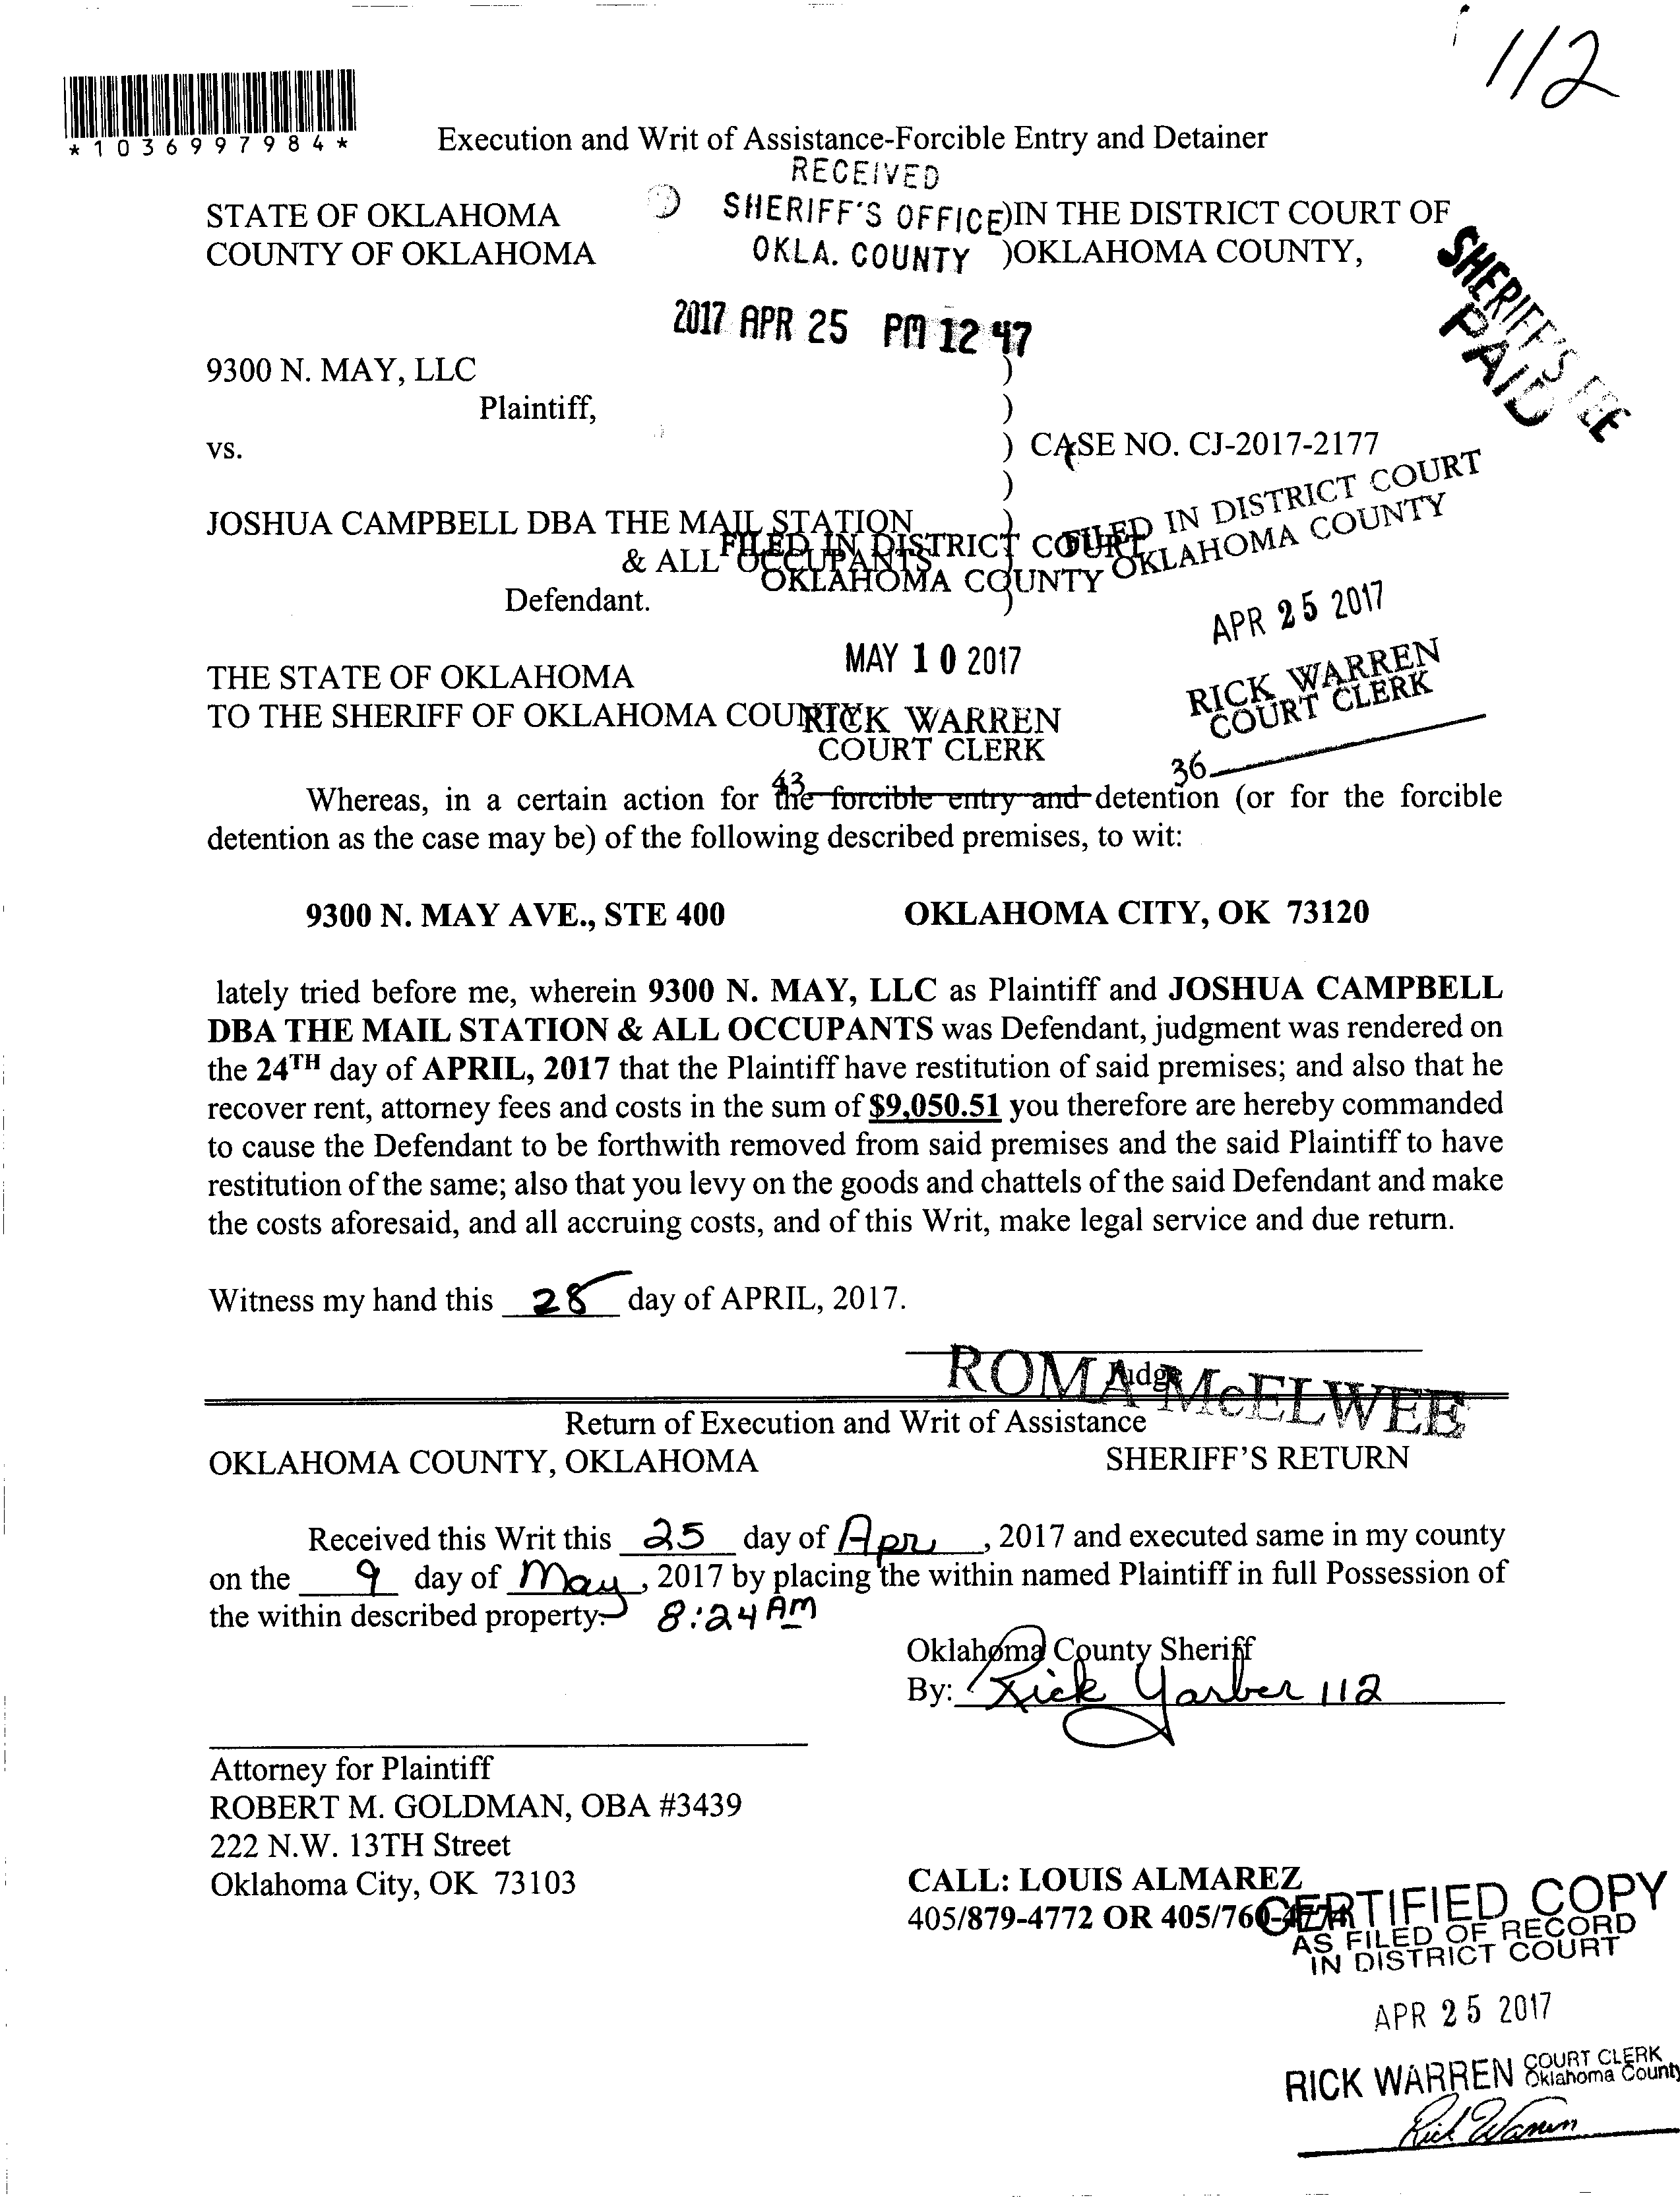 112
*1036997984*
Execution and Writ of Assistance-Forcible Entry and Detainer
RECEIVED
SHERIFF'S OFFICE
OKLA. COUNTY
2017 APR 25 PM 12 47
STATE OF OKLAHOMA )IN THE DISTRICT COURT OF
COUNTY OF OKLAHOMA )OKLAHOMA COUNTY,
SHERIFF'S FEE
PAID
9300 N. MAY, LLC )
Plaintiff, )
vs. ) CASE NO. CJ-2017-2177
)
JOSHUA CAMPBELL DBA THE MAIL STATION )
& ALL OCCUPANTS
Defendant. )
FILED IN DISTRICT COURT
OKLAHOMA COUNTY
MAY 10 2017
RICK WARREN
COURT CLERK
43
FILED IN DISTRICT COURT
OKLAHOMA COUNTY
APR 25 2017
RICK WARREN
COURT CLERK
36
THE STATE OF OKLAHOMA
TO THE SHERIFF OF OKLAHOMA COUNTY
Whereas, in a certain action for the forcible entry and detention (or for the forcible
detention as the case may be) of the following described premises, to wit:
9300 N. MAY AVE., STE 400 OKLAHOMA CITY, OK 73120
lately tried before me, wherein 9300 N. MAY, LLC as Plaintiff and JOSHUA CAMPBELL
DBA THE MAIL STATION & ALL OCCUPANTS was Defendant, judgment was rendered on
the 24TH day of APRIL, 2017 that the Plaintiff have restitution of said premises; and also that he
recover rent, attorney fees and costs in the sum of $9,050.51 you therefore are hereby commanded
to cause the Defendant to be forthwith removed from said premises and the said Plaintiff to have
restitution of the same; also that you levy on the goods and chattels of the said Defendant and make
the costs aforesaid, and all accruing costs, and of this Writ, make legal service and due return.
Witness my hand this 28 day of APRIL, 2017.
Judge
ROMA McELWEE
Return of Execution and Writ of Assistance
OKLAHOMA COUNTY, OKLAHOMA SHERIFF'S RETURN
Received this Writ this 25 day of Apr, 2017 and executed same in my county
on the 9 day of May, 2017 by placing the within named Plaintiff in full Possession of
the within described property. 8:24 AM
Oklahoma County Sheriff
By: Rick Yarber 112
Attorney for Plaintiff
ROBERT M. GOLDMAN, OBA #3439
222 N.W. 13TH Street
Oklahoma City, OK 73103
CALL: LOUIS ALMAREZ
405/879-4772 OR 405/760-4774
CERTIFIED COPY
AS FILED OF RECORD
IN DISTRICT COURT
APR 25 2017
RICK WARREN COURT CLERK
Oklahoma County
Rick Warren